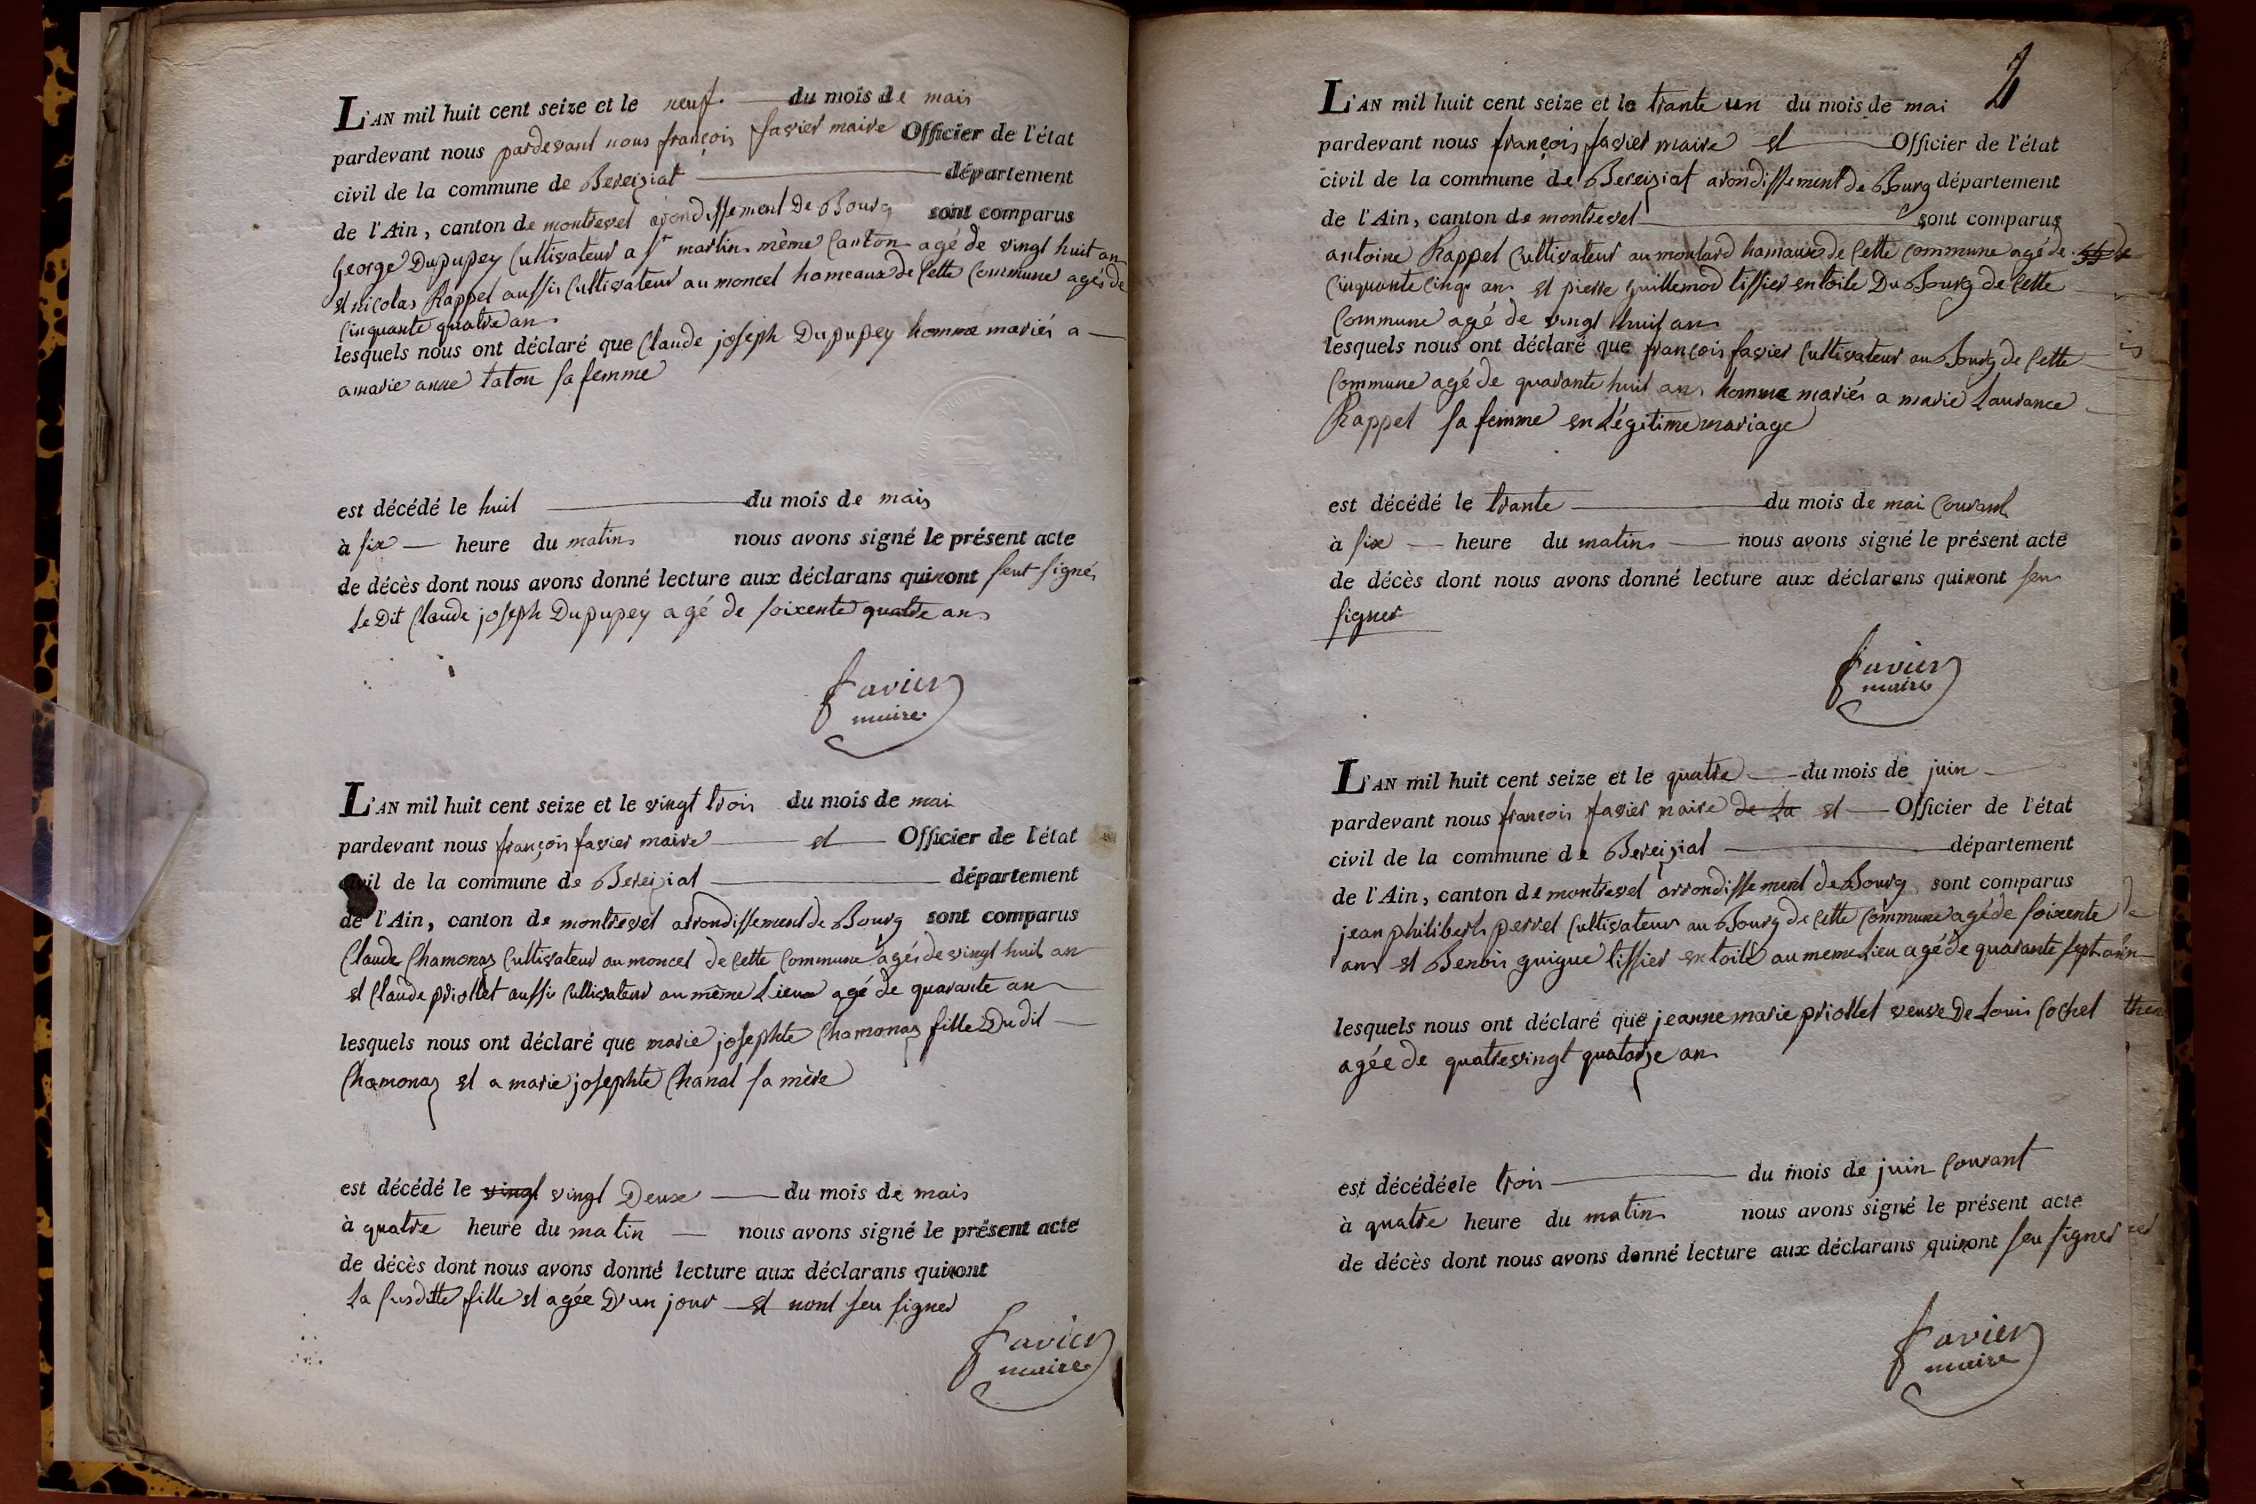 L'AN mil huit cent seize et le neuf. du mois de mais
pardevant nous pardevant nous françois favier maire Officier de l'état
civil de la commune de Bereiziat département
de l'Ain, canton de montrevel arondissement De Bourg sont comparus
George Dupupey Cultivateur a St martin même Canton agé de vingt huit an
et nicolas Rappet aussi Cultivateur au moncel hameaux de Cette Commune agés de
Cinquante quatre ans
lesquels nous ont déclaré que Claude joseph Dupupey homme mariés a
a marie anne taton sa femme
est décédé le huit du mois de mais
à six heure du matins nous avons signé le présent acte
de décès dont nous avons donné lecture aux déclarans qui nont seut signés
Le Dit Claude joseph Dupupey agé de soixente quatre ans
favier
maire
L'AN mil huit cent seize et le vingt trois du mois de mai
pardevant nous françois favier maire et Officier de l'état
civil de la commune de Bereiziat département
de l'Ain, canton de montrevel arrondissement de Bourg sont comparus
Claude Chamonaz Cultivateur au moncel de Cette Commune agés de vingt huit an
et Claude priollet aussi Cultivateur au même Lieux agé de quarante an
lesquels nous ont déclaré que marie josephte Chamonaz fille Dudit
Chamonaz et a marie josephte Chanal sa mère
est décédé le vingt vingt Deux du mois de mais
à quatre heure du matin nous avons signé le présent acte
de décès dont nous avons donné lecture aux déclarans qui nont
La susditte fille et agée D'un jour et nont seu signer
favier
maire
2
L'AN mil huit cent seize et le trante un du mois de mai
pardevant nous françois favier maire et Officier de l'état
civil de la commune de Bereiziat arondissement de Bourg département
de l'Ain, canton de montrevel sont comparus
antoine Rappet Cultivateur au moutard hamaux de Cette Commune agé de
Cinquante Cinq ans et pierre guillemod tissier en toile Du Bourg de Cette
Commune agé de vingt huit ans
lesquels nous ont déclaré que françois favier Cultivateur au Bourg de Cette
Commune agé de quarante huit ans homme mariés a marie Laurance
Rappet sa femme en Légitime mariage
est décédé le trante du mois de mai Courant
à six heure du matins nous avons signé le présent acte
de décès dont nous avons donné lecture aux déclarans qui nont seu
signer
favier
maire
L'AN mil huit cent seize et le quatre du mois de juin
pardevant nous françois favier maire de La et Officier de l'état
civil de la commune de Bereiziat département
de l'Ain, canton de montrevel arrondissement de Bourg sont comparus
jean philibert perret Cultivateur au Bourg de Cette Commune agé de soixente
ans et Benois guigue tissier en toile au meme Lieu agé de quarante sept
lesquels nous ont déclaré que jeanne marie priollet veuve De Louis Cochet
agée de quatrevingt quatorze ans
est décédée le trois du mois de juin Courant
à quatre heure du matins nous avons signé le présent acte
de décès dont nous avons donné lecture aux déclarans qui nont seu signer
favier
maire